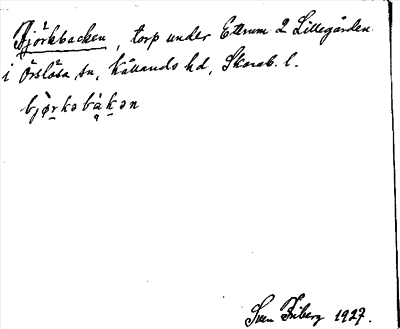 Björkbacken, torp under Ettrum 2 Lillegården
i Örslösa sn, Kållands hd, Skarab. l.
bjø̀r̠kəbàk̠ən
Sven Friberg 1927.